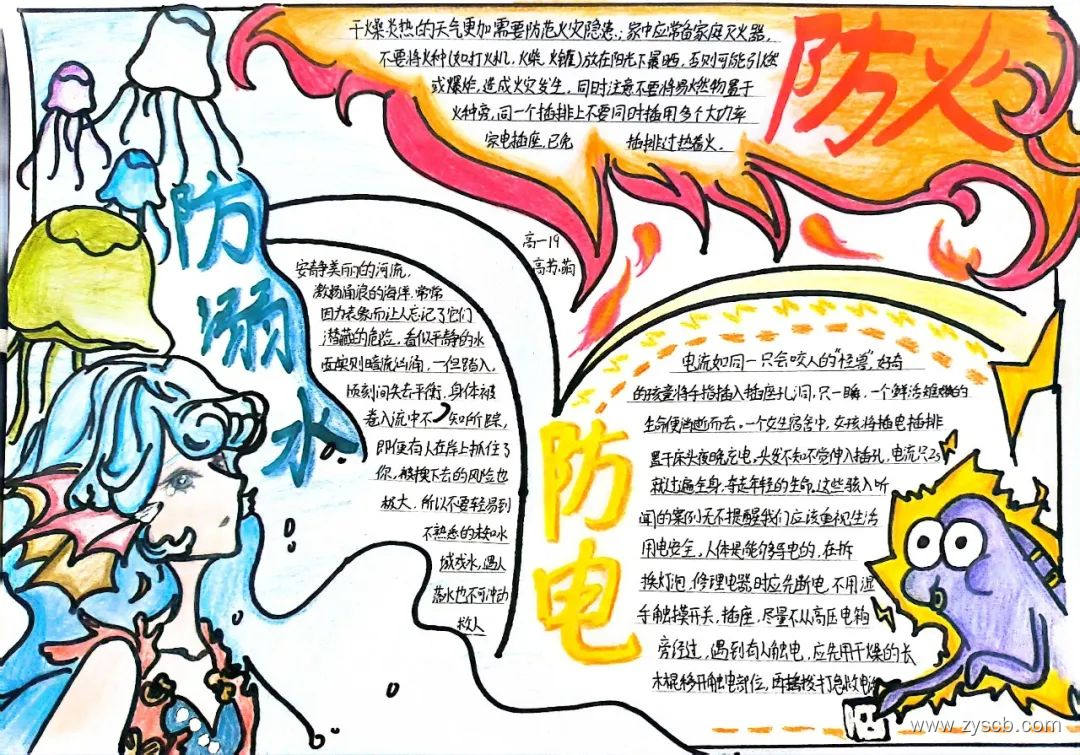 防火
干燥炎热的天气更加需要防范火灾隐患；家中应常备家庭灭火器，
不要将火种(如打火机，火柴，火罐)放在阳光下暴晒，否则可能引燃
或爆炸，造成火灾发生，同时注意不要将易燃物置于
火种旁，同一个插排上不要同时插用多个大功率
家电插座，已免 插排过热着火。
高一19
高苏萌
防溺水
安静美丽的河流，
激扬涌浪的海洋，常常
因为表象而让人忘记了它们
潜藏的危险，看似平静的水
面实则暗流汹涌，一但踏入，
顷刻间失去平衡，身体被
卷入流中不知所踪，
即便有人在岸上抓住了
你，被拽下去的风险也
极大，所以不要轻易到
不熟悉的
域戏水，遇人
落水也不可冲动
救人
防电
电流如同一只会咬人的“怪兽”，好奇
的孩童将手指插入插座孔洞，只一瞬，一个鲜活的
生命便消逝而去。一个女生宿舍中，女孩将插电插排
置于床头夜晚充电，头发不知不觉伸入插孔，电流只2s
就过遍全身，夺走年轻的生命，这些骇人听
闻的案例无不提醒我们应该重视生活
用电安全，人体是能够导电的，在拆
换灯泡，修理电器时应先断电，不用湿
手触摸开关，插座，尽量不从高压电箱
旁经过，遇到有人触电，应先用干燥的长
木棍移开触电部位，再拨打急救电
www.zyscb.com